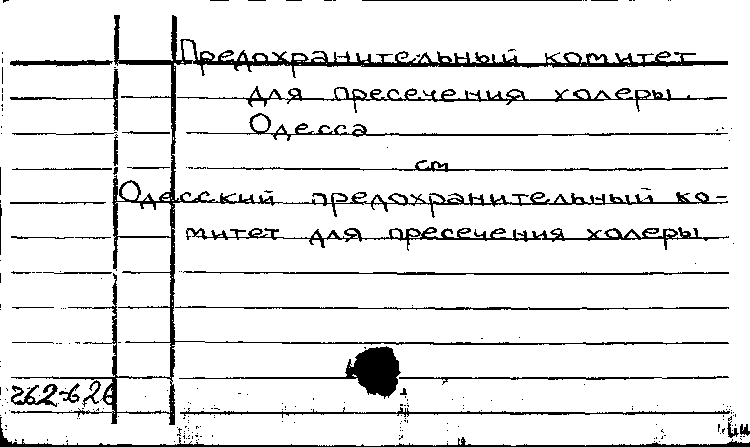 Предохранительный комитет
для пресечения холеры.
Одесса
см
Одесский предохранительный ко-
митет для пресечения холеры.
262-626